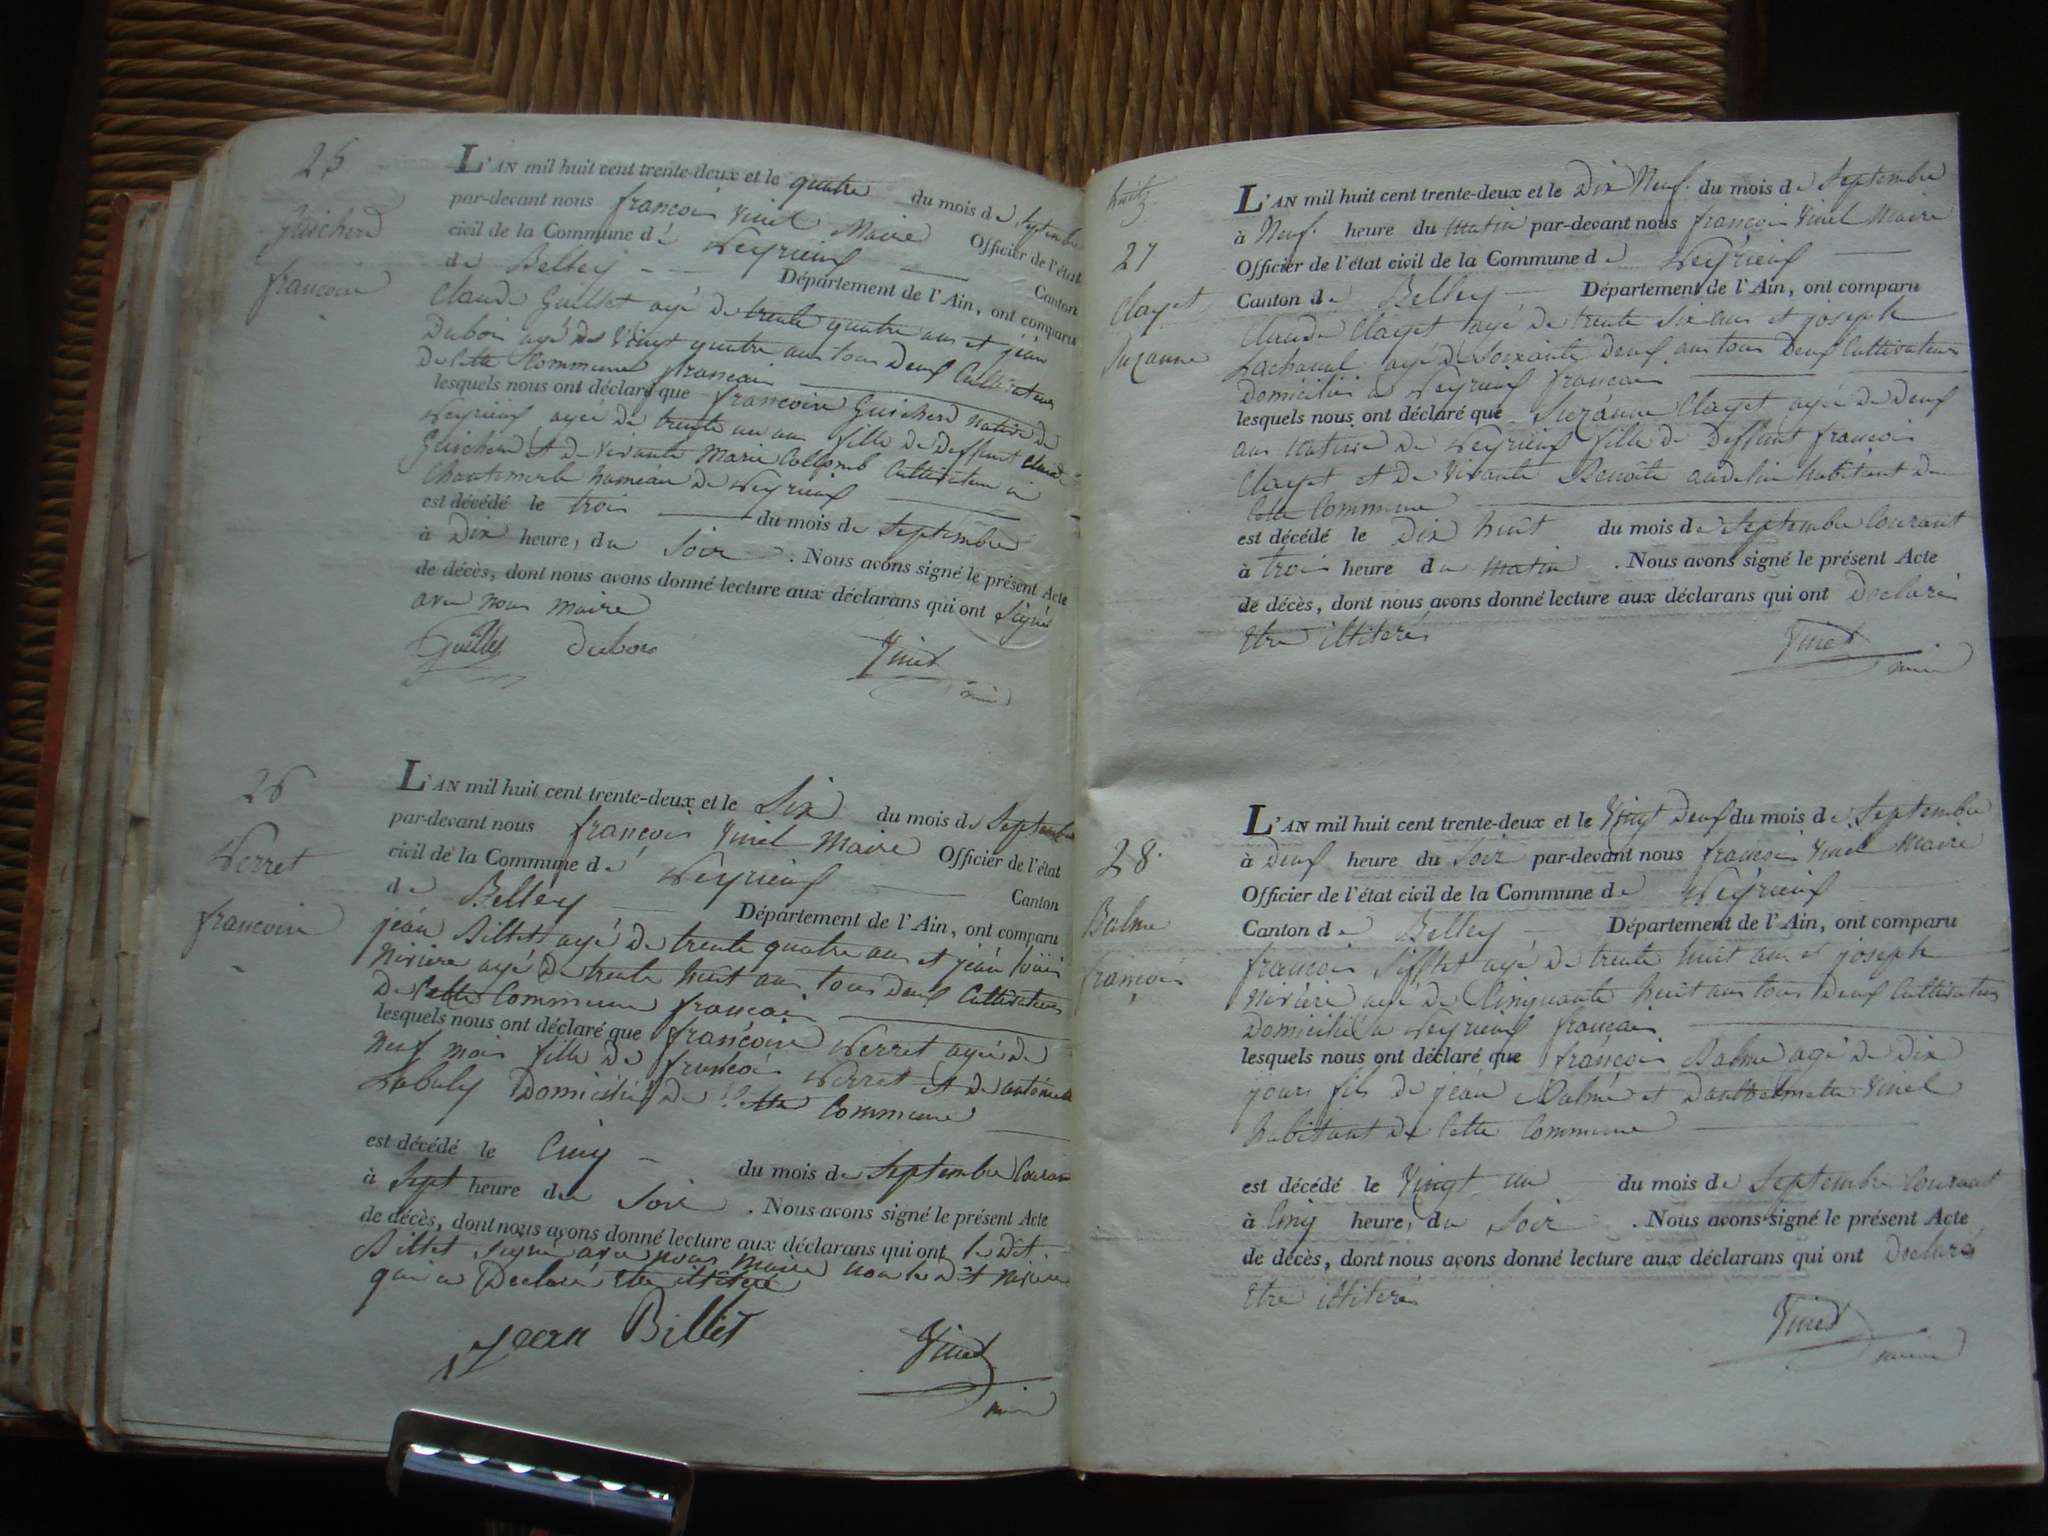 25
Guicherd
francoise
L'AN mil huit cent trente-deux et le quatre du mois de septembre
par-devant nous françois Vinel Maire Officier de l'état
civil de la Commune de Veyrieux Canton
de Belley Département de l'Ain, ont comparu
Claude Guillet agé de trente quatre ans et jéan
Dubois agé de Vingt quatre ans tous Deux Cultivateurs
De Cette Commune francais
lesquels nous ont déclaré que francoise Guicherd Native de
Veyrieux agée de trente un ans fille de Deffunt Claude
Guicherd et de vivante Marie Collomb Cultivateur à
Chantemerle hameau de Veyrieux
est décédé le trois du mois de Septembre
à Dix heure, du Soir . Nous avons signé le présent Acte
de décès, dont nous avons donné lecture aux déclarans qui ont Signé
avec nous maire
Guillet Dubois Vinel
maire
26
Verret
francoise
L'AN mil huit cent trente-deux et le Six du mois de Septembre
par-devant nous françois Vinel Maire Officier de l'état
civil de la Commune de Veyrieux Canton
de Belley Département de l'Ain, ont comparu
jéan Billet agé de trente quatre ans et jéan loüis
Nivière agé de trente huit ans tous Deux Cultivateurs
De Cette Commune francais
lesquels nous ont déclaré que francoise Verret agée de
Neuf mois fille de francois Verret et de antoinette
Labuly Domiciliés De Cette Commune
est décédé le Cinq du mois de Septembre Courant
à Sept heure du Soir . Nous avons signé le présent Acte
de décès, dont nous avons donné lecture aux déclarans qui ont le Dit
Billet Signé avec nous Maire non le Dit Nivière
qui a Déclaré Etre illiteré
Jean Billet Vinel
maire
huit
27
Clayet
Suzanne
L'AN mil huit cent trente-deux et le Dix Neuf du mois de Septembre
à Neuf heure du Matin par-devant nous françois Vinel Maire
Officier de l'état civil de la Commune de Veyrieux
Canton de Belley Département de l'Ain, ont comparu
Claude Clayet agé de trente Six ans et joseph
Lachaval agé de Soixante Deux ans tous Deux Cultivateurs
Domiciliés à Veyrieux francais
lesquels nous ont déclaré que Suzanne Clayet agée de Deux
ans Native de Veyrieux fille de Deffunt françois
Clayet et de Vivante Benoite habitant de
Cette Commune
est décédé le Dix huit du mois de Septembre Courant
à trois heure du Matin . Nous avons signé le présent Acte
de décès, dont nous avons donné lecture aux déclarans qui ont Déclaré
Etre illiterés
Vinel
maire
28.
Balme
françois
L'AN mil huit cent trente-deux et le Vingt Deux du mois de Septembre
à Deux heure du Soir par-devant nous francois Vinel Maire
Officier de l'état civil de la Commune de Veyrieux
Canton de Belley Département de l'Ain, ont comparu
francois Sifflet agé de trente huit ans et joseph
Nivière agé de Cinquante huit ans tous Deux Cultivateurs
Domicilié à Veyrieux francais
lesquels nous ont déclaré que françois Balme agé de Dix
jours fils de jéan Balme et Vinel
habitant de Cette Commune
est décédé le Vingt un du mois de Septembre Courant
à Cinq heure, du Soir . Nous avons signé le présent Acte
de décès, dont nous avons donné lecture aux déclarans qui ont Déclaré
Etre illiterés
Vinel
maire